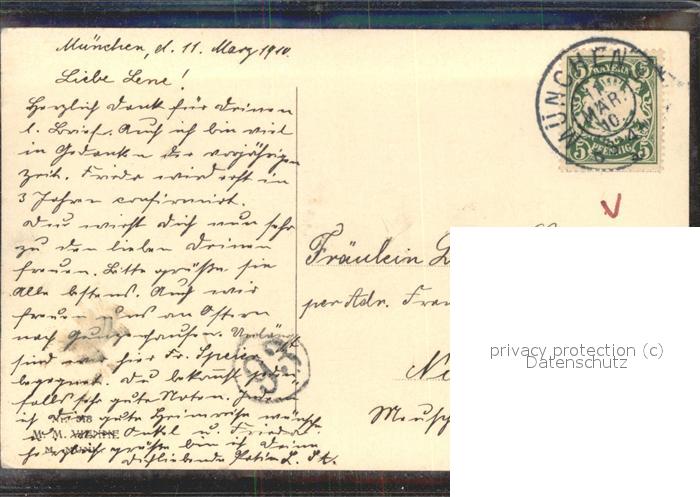 München, d. 11. März 1910.
Liebe Lene!
Herzlich Dank für Deinen
l. Brief. Auch ich bin viel
in Gedanken der vorjährigen
Zeit. Frieda wird erst in
3 Jahren confirmiert.
Du wirst Dich nun sehr
zu den lieben Deinen
freuen. Bitte grüße sie
Alle bestens. Auch wir
freuen uns an Ostern
nach Gunzenhausen.
sind wir hier Fr. Speier
begegnet. Du bekommst jeden-
falls sehr gute Noten.
ich Dir gute Heimreise wünsche
Onkel u. Frieda
herzlich grüße bin ich Deine
Dichliebende
MÜNCHEN
11
MAR.
10
5 BAYERN 5
5 PFENNIG 5
Fräulein L
per Adr. Frau
93
M. M. VIENNE
privacy protection (c)
Datenschutz